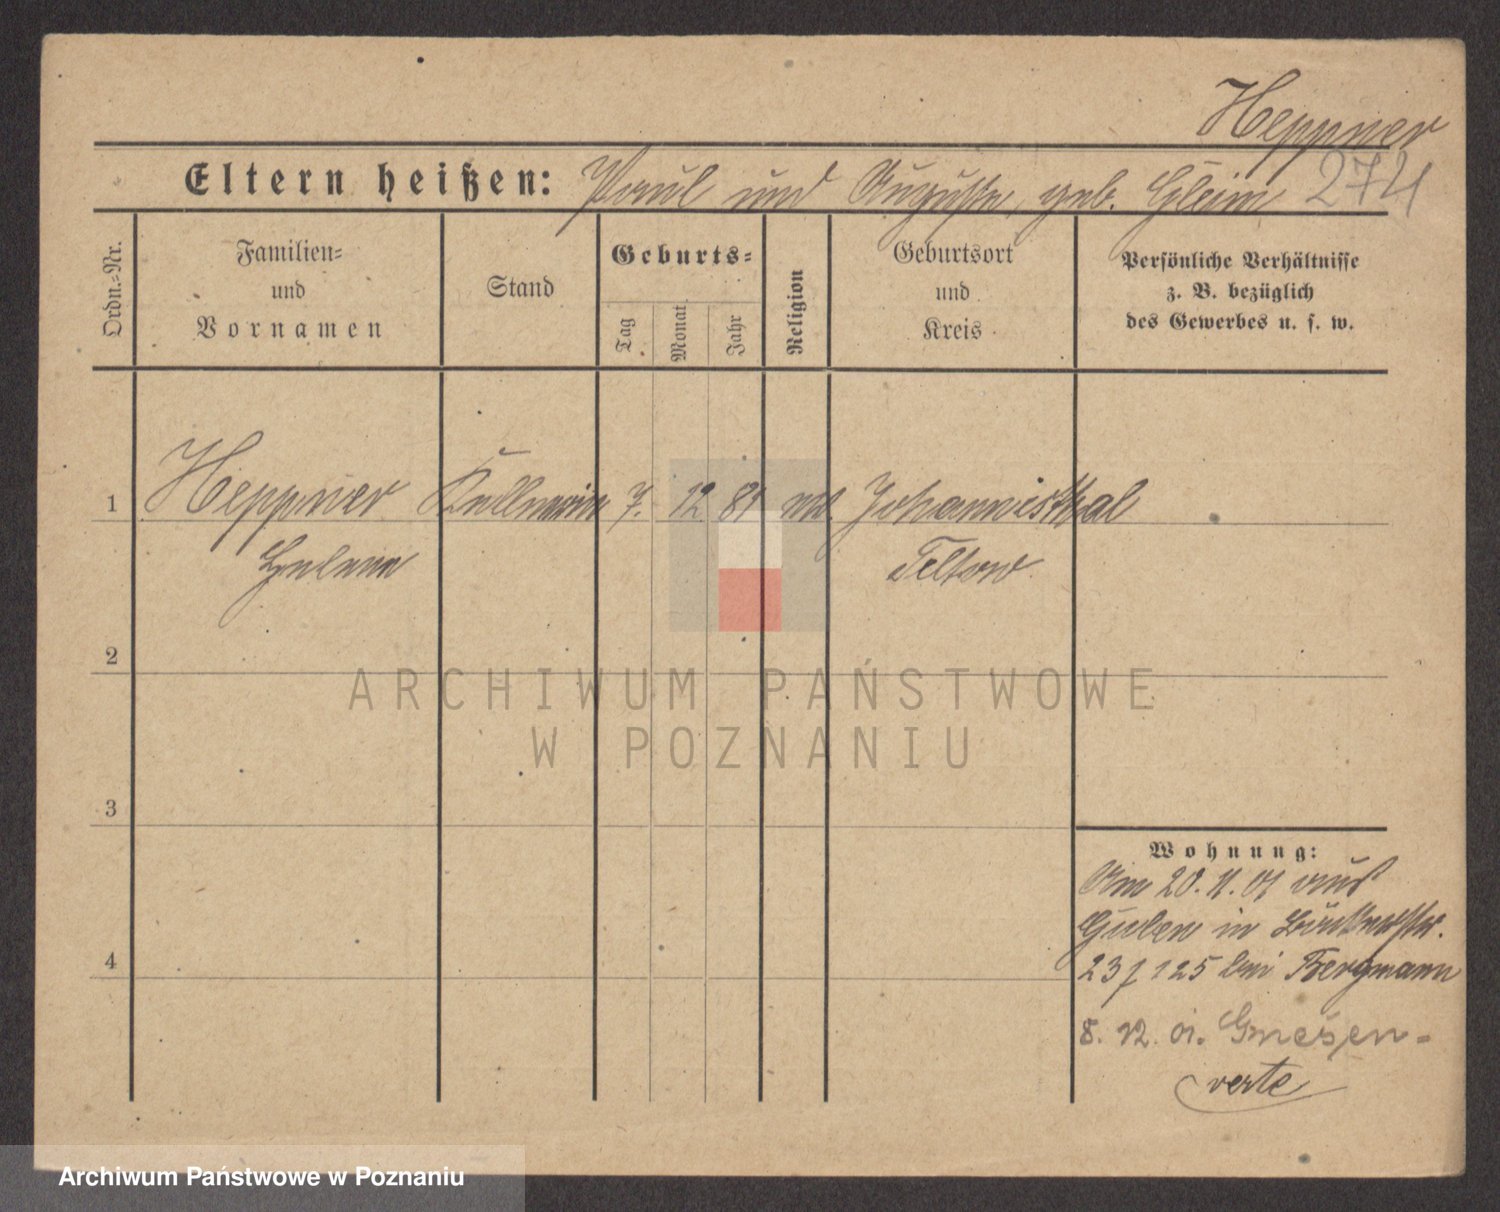 Heppner
Eltern heißen: Paul und Auguste, geb. Gleim 274
Ordn.=Nr.
Familien=
und
Vornamen
Stand
Geburts=
Tag
Monat
Jahr
Religion
Geburtsort
und
Kreis
Persönliche Verhältnisse
z. B. bezüglich
des Gewerbes u. s. w.
1 Heppner Kellnerin 7. 12 81 Johannisthal
Helene Teltow
2
ARCHIWUM PAŃSTWOWE
W POZNANIU
3
Wohnung:
Am 20. 11. 01 aus
Guben in
23 125 bei Bergmann
4
8. 12. 01. Gnesen-
verte
Archiwum Państwowe w Poznaniu